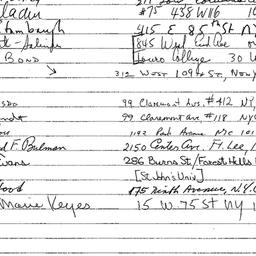 #75 458 W 116
Stambaugh 415 E 85th St NY
845 West End Ave
BOND Touro College 30 W
312 WEST 109th St., New Y
99 Claremont Ave. #412 NY,
99 Claremont Ave, #118 NY
1192 Park Avenue NYC 101
F. Bulman 2150 Center Ave. Ft. Lee,
Evans 286 Burns St/Forest Hills
[St John's Univ]
175 Ninth Avenue, N.Y.C
Marie Keyes 15 W. 75 St NY